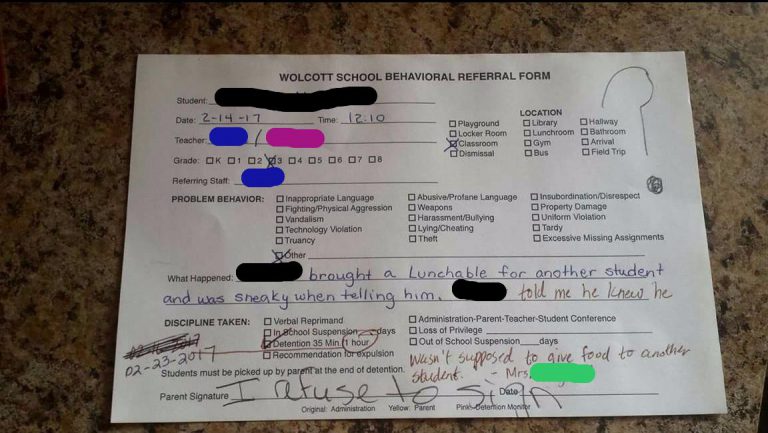 WOLCOTT SCHOOL BEHAVIORAL REFERRAL FORM
Student:
Date: 2-14-17 Time: 12:10
Teacher: /
Grade: K 1 2 3 4 5 6 7 8
Referring Staff:
LOCATION
Playground Library Hallway
Locker Room Lunchroom Bathroom
Classroom Gym Arrival
Dismissal Bus Field Trip
PROBLEM BEHAVIOR: Inappropriate Language Abusive/Profane Language Insubordination/Disrespect
Fighting/Physical Aggression Weapons Property Damage
Vandalism Harassment/Bullying Uniform Violation
Technology Violation Lying/Cheating Tardy
Truancy Theft Excessive Missing Assignments
Other
What Happened: brought a Lunchable for another student
and was sneaky when telling him. told me he knew he
wasn't supposed to give food to another
student. - Mrs.
DISCIPLINE TAKEN: Verbal Reprimand Administration-Parent-Teacher-Student Conference
In School Suspension days Loss of Privilege
Detention 35 Min/1 hour Out of School Suspension days
02-23-2017 Recommendation for expulsion
Students must be picked up by parent at the end of detention.
Parent Signature I refuse to sign Date
Original: Administration Yellow: Parent Pink-Detention Monitor